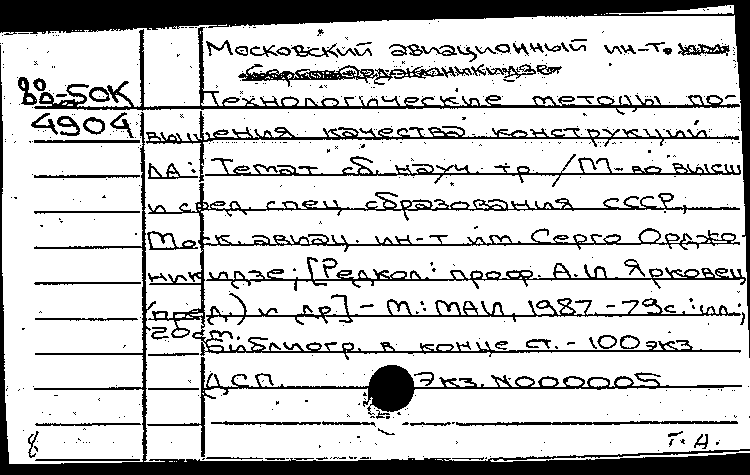 Московский авиационный ин-т. им.
Серго Орджоникидзе
88-50К Технологические методы по-
4904 вышения качества конструкций
ЛА: Темат. сб. науч. тр. / М-во высш
и сред. спец. образования СССР,
Моск. авиац. ин-т им. Серго Орджо-
никидзе; [Редкол.: проф. А.И. Ярковец
(пред.) и др] - М.: МАИ, 1987. - 79с.: ил.;
20см.
Библиогр. в конце ст. - 100 экз
ДСП. Экз. N000005
Т. А.